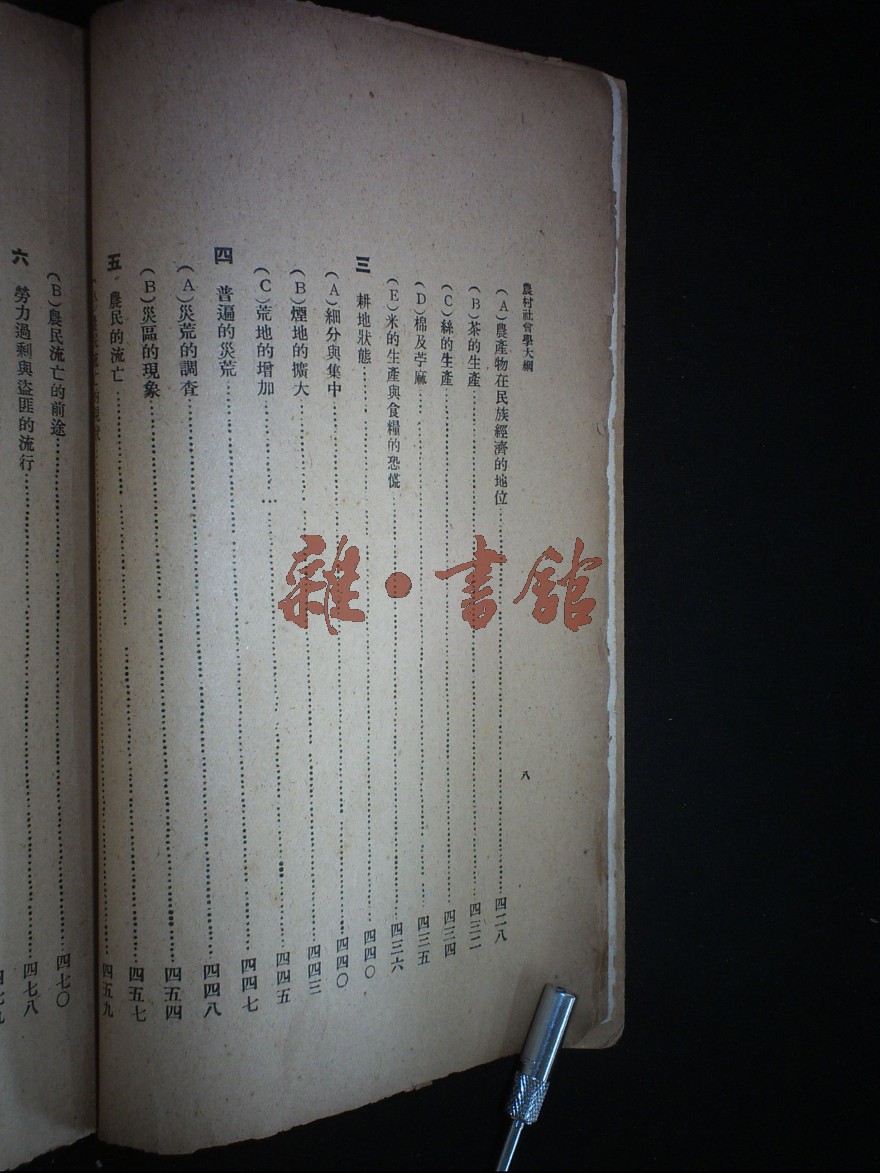 農村社會學大綱 八
(A)農產物在民族經濟的地位……四二八
(B)茶的生產……四三二
(C)絲的生產……四三四
(D)棉及苧麻……四三五
(E)米的生產與食糧的恐慌……四三六
三 耕地狀態……四四〇
(A)細分與集中……四四〇
(B)煙地的擴大……四四三
(C)荒地的增加……四四五
四 普遍的災荒……四四七
(A)災荒的調查……四四八
(B)災區的現象……四五四
五 農民的流亡……四五七
……四五九
(B)農民流亡的前途……四七〇
六 勞力過剩與盜匪的流行……四七八
雜•書館